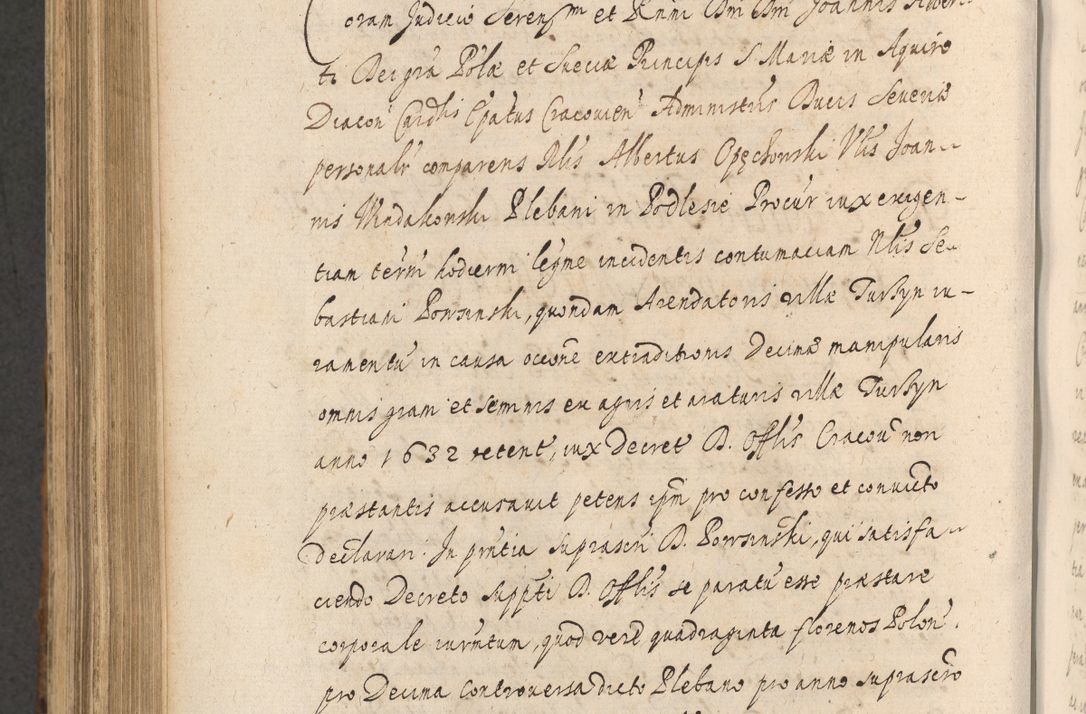 oram Judicio Sereniss͞m et R͞ndmi D͞ni D͞ni Joannis Alber
ti Dei grã Polæ et Sueciæ Principis S Mariæ in Aquiro
Diacon͂ Cardlis Ep͂atus Cracovien͂ Administris Ducis Severiæ
personalr̃ comparens Nlis Albertus Opęchowski Vlis Joan-
nis Wlndakowski Plebani in Podlesie Procur̃ iux exigen-
tiam term̃ hodierni legme incidentis contumaciam Nlis Se-
bastiani Powsinski, quondam Arendatoris villæ Turssyn iu-
ramentũ in causa occõne extraditionis Decimæ manipularis
omnis grani et seminis ex agris et araturis villæ Turssyn
anno 1632 retent͂, iux Decret͂ D. Offlis Cracoũ non
præstantis accusavit petens ipm̃ pro confesso et convicto
declarari. In pntia suprascri D. Powsinski, qui satisfa-
ciendo Decreto suppti D. Offlis se paratũ esse præstare
corporale iurmtum, quod vere quadraginta florenos Polon͂.
pro Decima controversa dicto Plebano pro anno suprascro